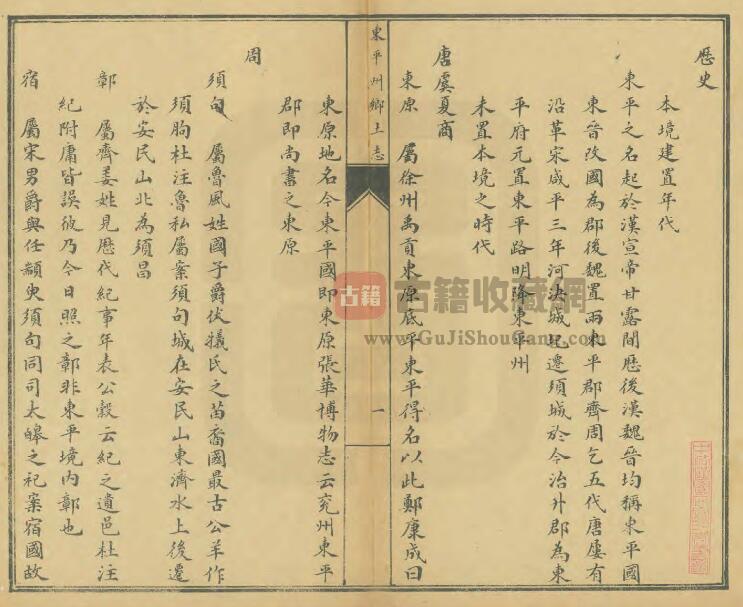 歷史
本境建置年代
東平之名起於漢宣帝甘露間歷後漢魏晉均稱東平國
東晉改國為郡後魏置兩東平郡齊周乞五代唐屢有
沿革宋咸平三年河決城圮遷須城於今治升郡為東
平府元置東平路明降東平州
未置本境之時代
唐虞夏商
東原 屬徐州禹貢東原底平東平得名以此鄭康成曰
東平州鄉土志
一
東原地名今東平國即東原張華博物志云兖州東平
郡即尚書之東原
周
須句 屬魯風姓國子爵伏犧氏之苗裔國最古公羊作
須朐杜注魯私屬案須句城在安民山東濟水上後遷
於安民山北為須昌
鄣 屬齊姜姓見歷代紀事年表公穀云紀之遺邑杜注
紀附庸皆誤彼乃今日照之鄣非東平境內鄣也
宿 屬宋男爵與任顓臾須句同司太皞之祀案宿國故
古籍 古籍收藏網
www.GuJiShouCang.com